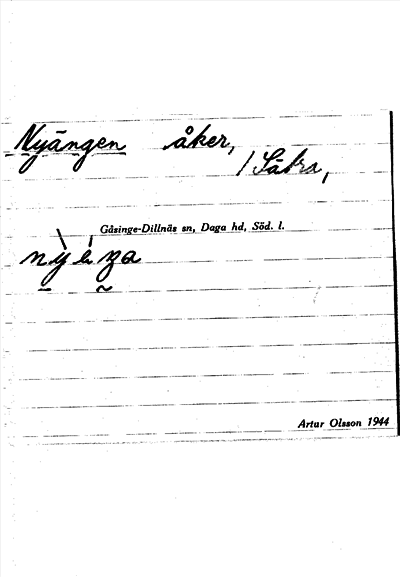 Nyängen åker,
/ Säbra,
Gåsinge-Dillnäs sn, Daga hd, Söd. l.
Artur Olsson 1944